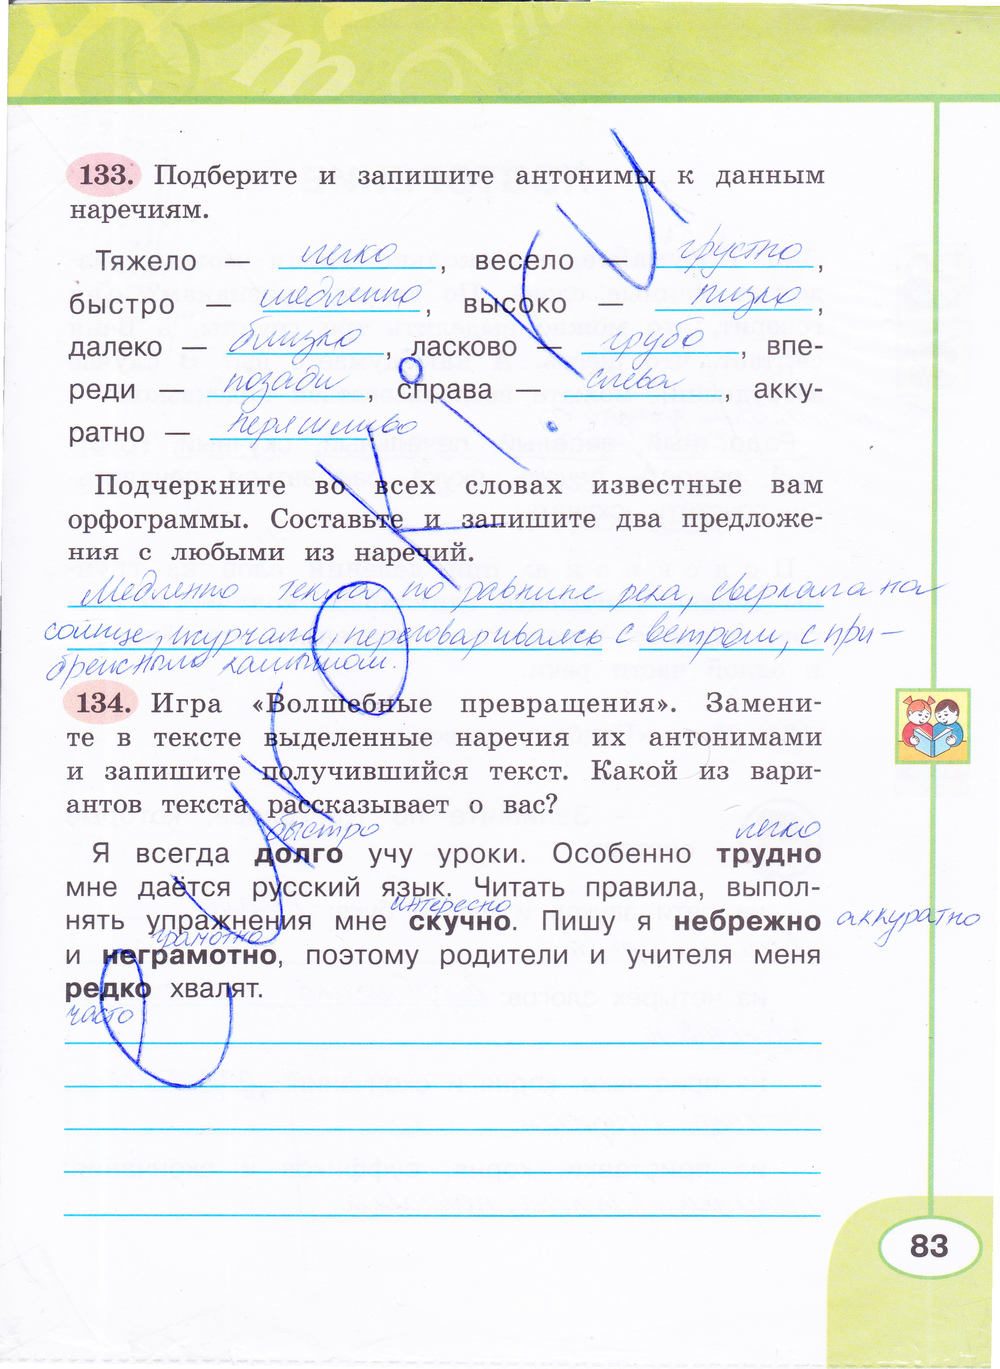 133. Подберите и запишите антонимы к данным
наречиям.
Тяжело — легко, весело — грустно,
быстро — медленно, высоко — низко,
далеко — близко, ласково — грубо, впе-
реди — позади, справа — слева, акку-
ратно — неряшливо.
Подчеркните во всех словах известные вам
орфограммы. Составьте и запишите два предложе-
ния с любыми из наречий.
Медленно текла по равнине река, сверкала на
солнце, журчала, переговариваясь с ветром, с при-
брежным камышом.
134. Игра «Волшебные превращения». Замени-
те в тексте выделенные наречия их антонимами
и запишите получившийся текст. Какой из вари-
антов текста рассказывает о вас?
быстро легко
Я всегда долго учу уроки. Особенно трудно
мне даётся русский язык. Читать правила, выпол-
интересно
нять упражнения мне скучно. Пишу я небрежно аккуратно
грамотно
и неграмотно, поэтому родители и учителя меня
редко хвалят.
часто
83